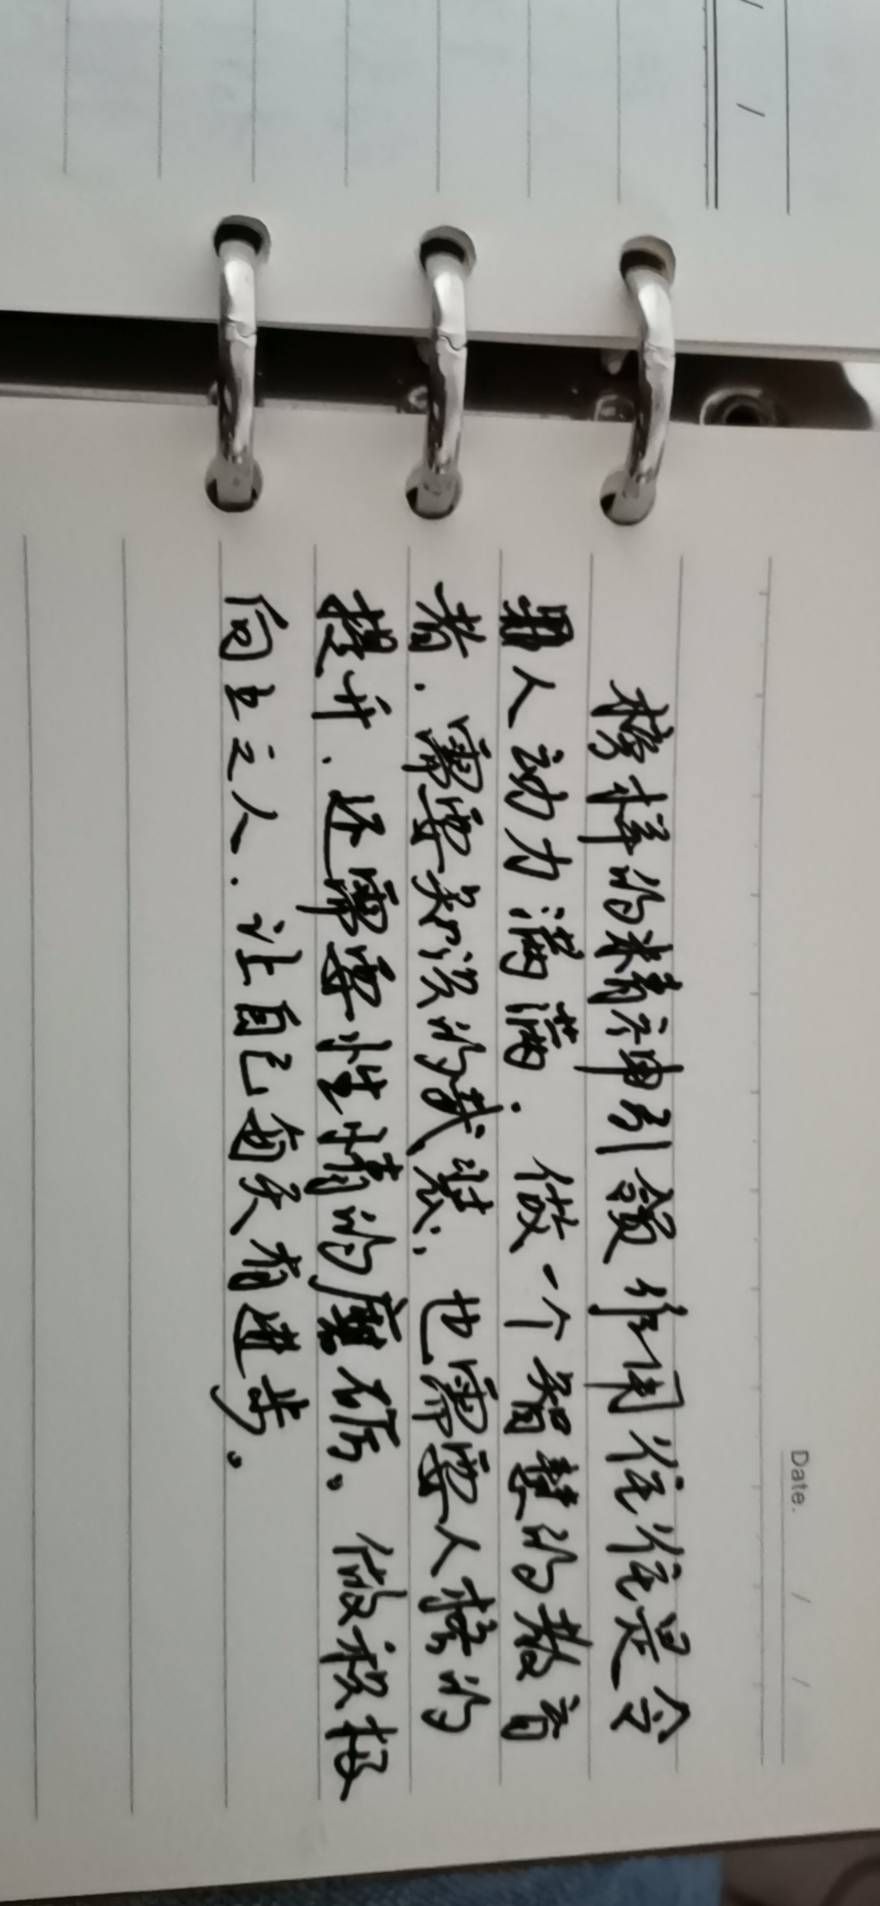 Date.    /    /
榜样的精神引领作用往往是令
人动力满满. 做一个智慧的教育
者. 需要知识的武装, 也需要人格的
提升. 还需要性情的磨砺。做积极
向上之人. 让自己每天有进步。